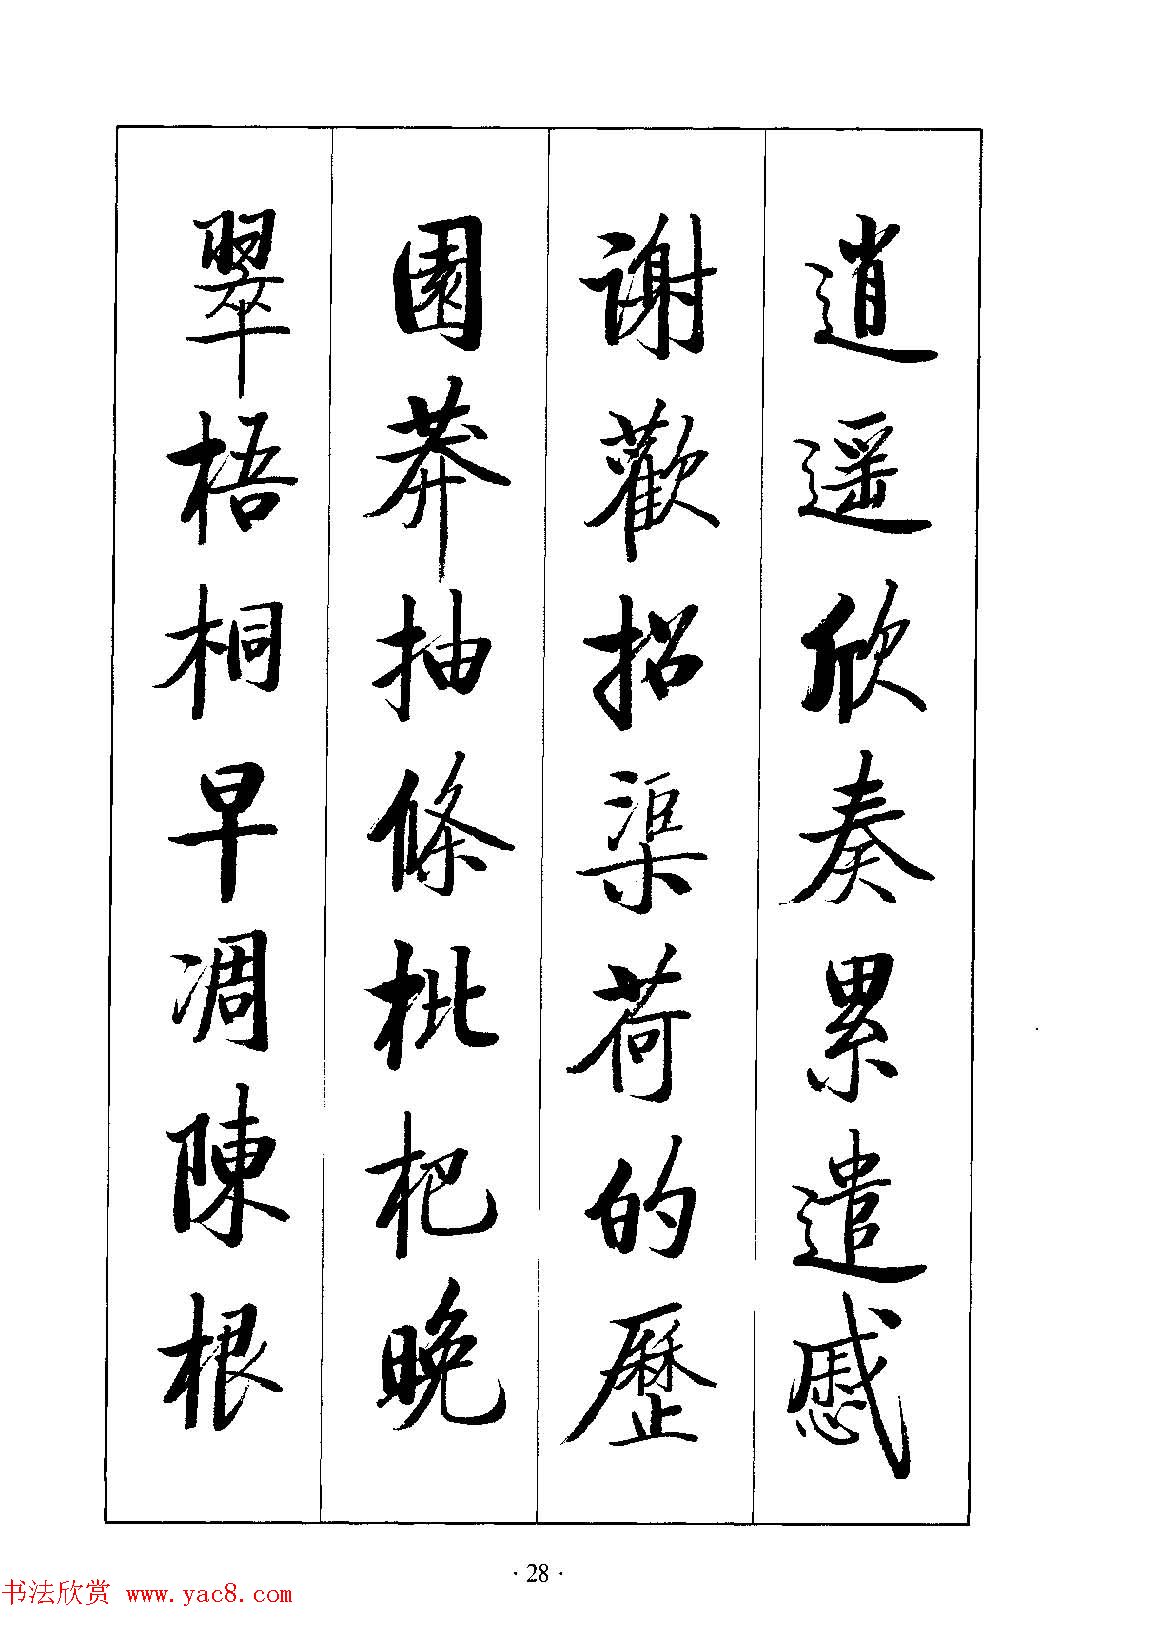 逍遥欣奏累遣慼
谢歡招渠荷的歷
園莽抽條枇杷晚
翠梧桐早凋陳根
·28·
书法欣赏 www.yac8.com